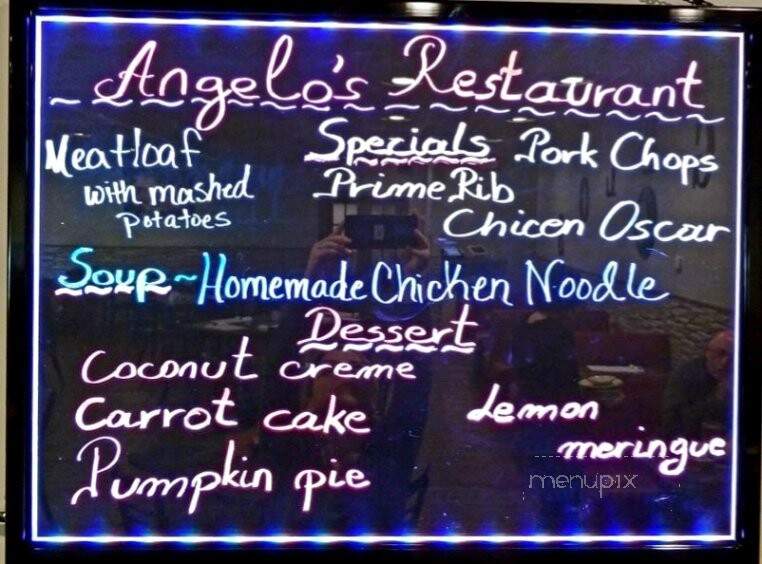 Angelo's Restaurant
Meatloaf
with mashed
potatoes
Specials
Prime Rib
Pork Chops
Chicen Oscar
Soup ~ Homemade Chicken Noodle
Dessert
Coconut creme
Carrot cake
Pumpkin pie
Lemon
meringue
menupix